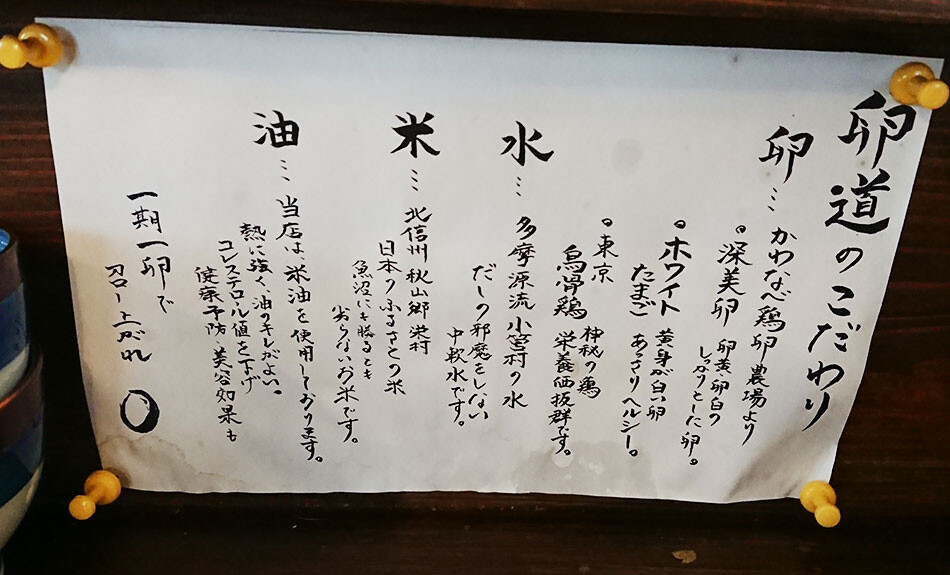 卵道のこだわり
卵…かわなべ鶏卵農場より
。深美卵 卵黄卵白の
しっかりとした卵。
。ホワイト
たまご
黄身が白い卵
あっさりヘルシー。
。東京
烏骨鶏
神秘の鶏
栄養価抜群です。
水…多摩源流小菅村の水
だしの邪魔をしない
中軟水です。
米…北信州 秋山郷栄村
日本のふるさとの米
魚沼にも勝るとも
劣らないお米です。
油…当店は米油を使用しております。
熱に強く、油のキレがよい。
コレステロール値を下げ
健康予防・美容効果も
一期一卵で
召し上がれ